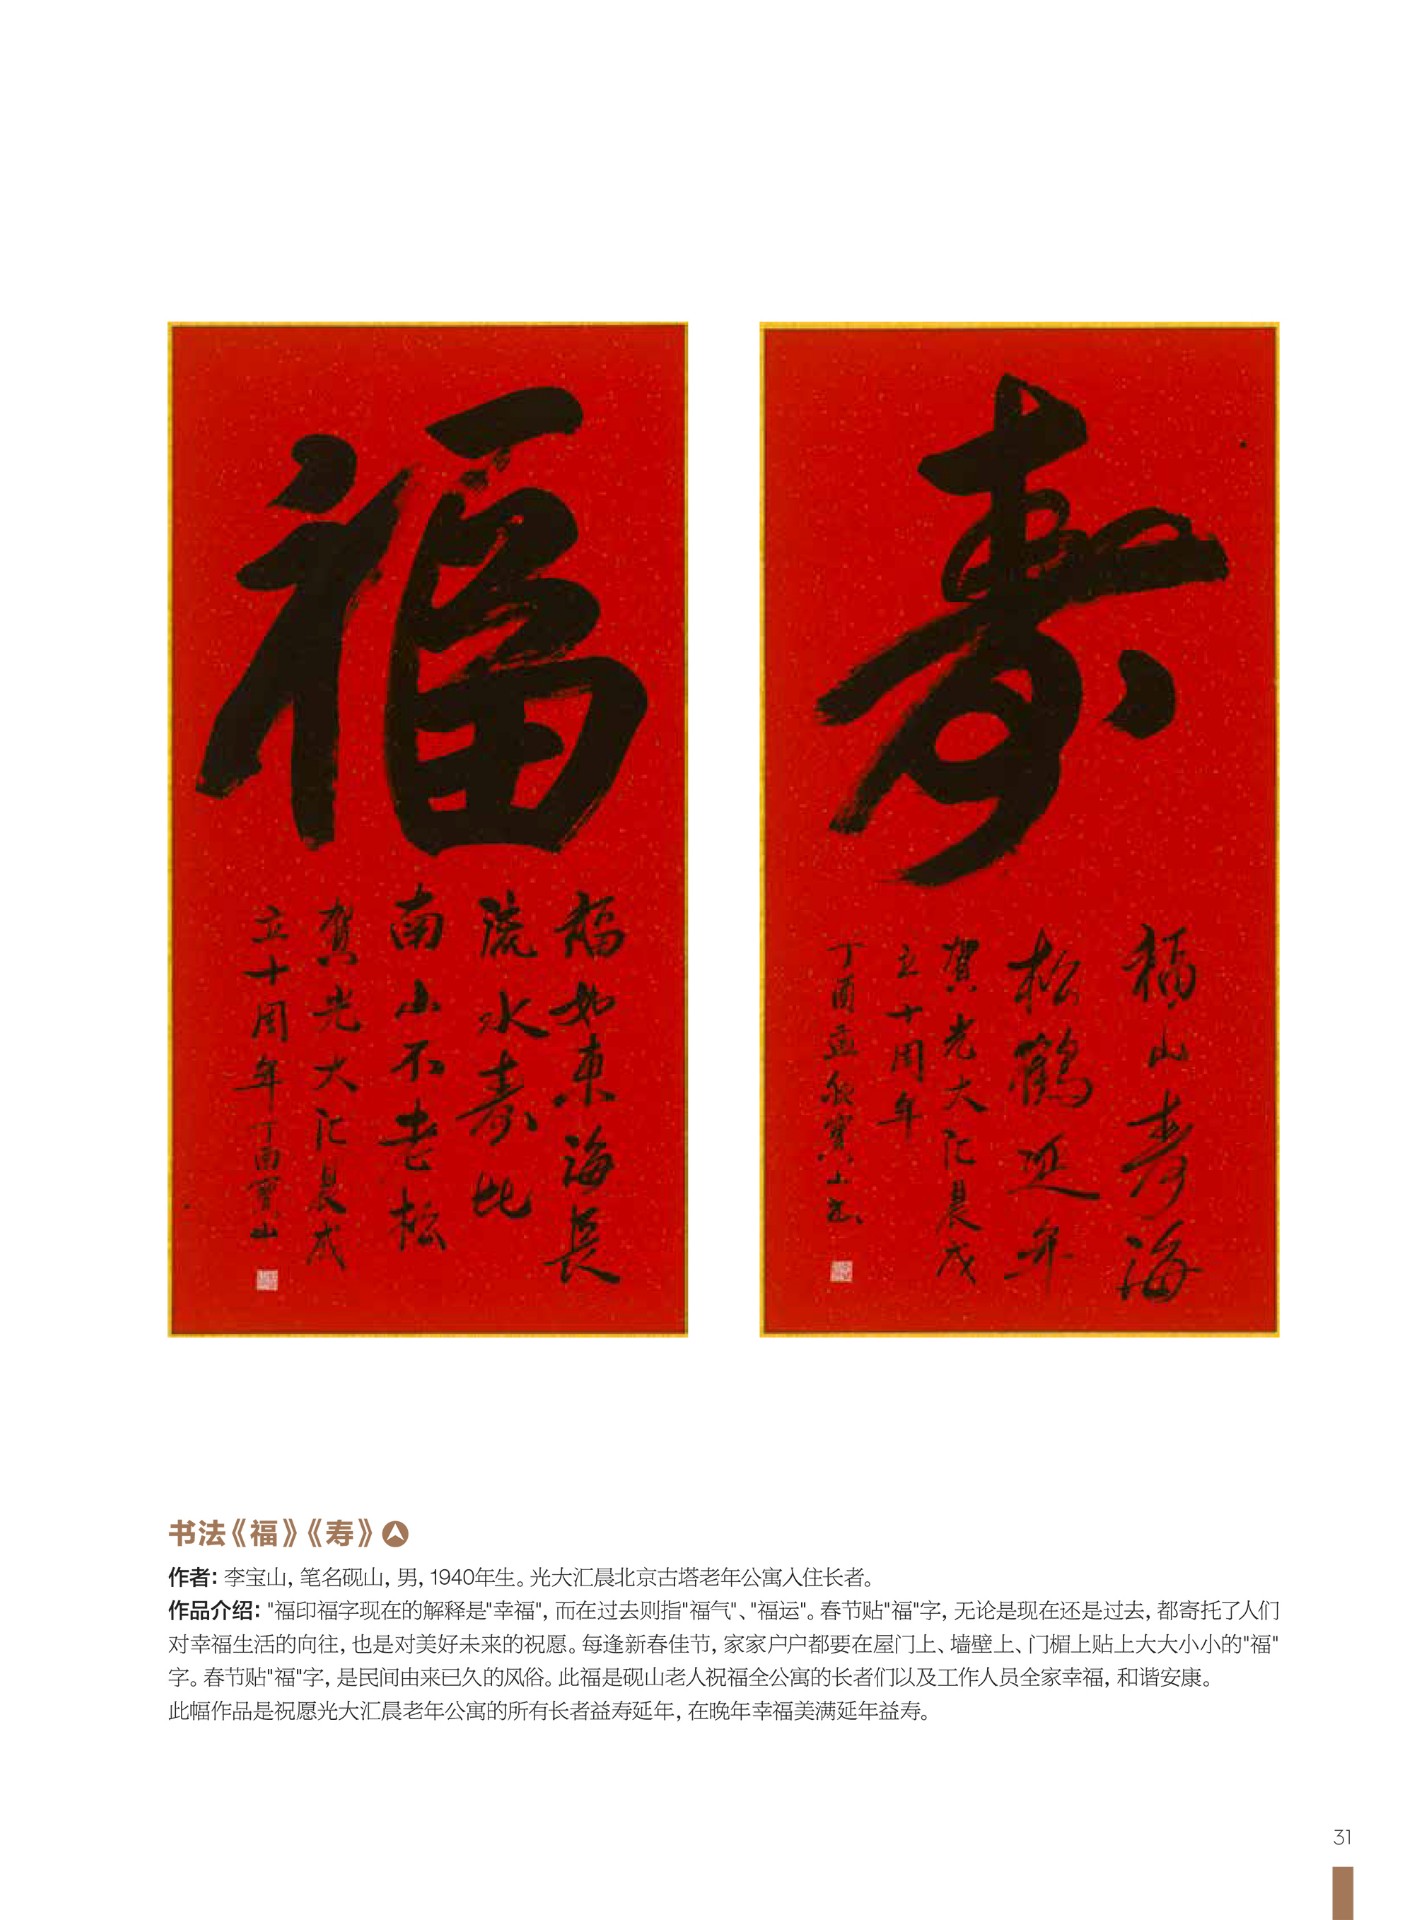 福
福如東海長
流水壽比
南山不老松
賀光大汇晨成
立十周年 丁酉寶山
寿
福山寿海
松鶴延年
賀光大汇晨成
立十周年
丁酉孟秋寶山书
书法《福》《寿》
作者：李宝山，笔名砚山，男，1940年生。光大汇晨北京古塔老年公寓入住长者。
作品介绍："福印福字现在的解释是"幸福"，而在过去则指"福气"、"福运"。春节贴"福"字，无论是现在还是过去，都寄托了人们
对幸福生活的向往，也是对美好未来的祝愿。每逢新春佳节，家家户户都要在屋门上、墙壁上、门楣上贴上大大小小的"福"
字。春节贴"福"字，是民间由来已久的风俗。此福是砚山老人祝福全公寓的长者们以及工作人员全家幸福，和谐安康。
此幅作品是祝愿光大汇晨老年公寓的所有长者益寿延年，在晚年幸福美满延年益寿。
31